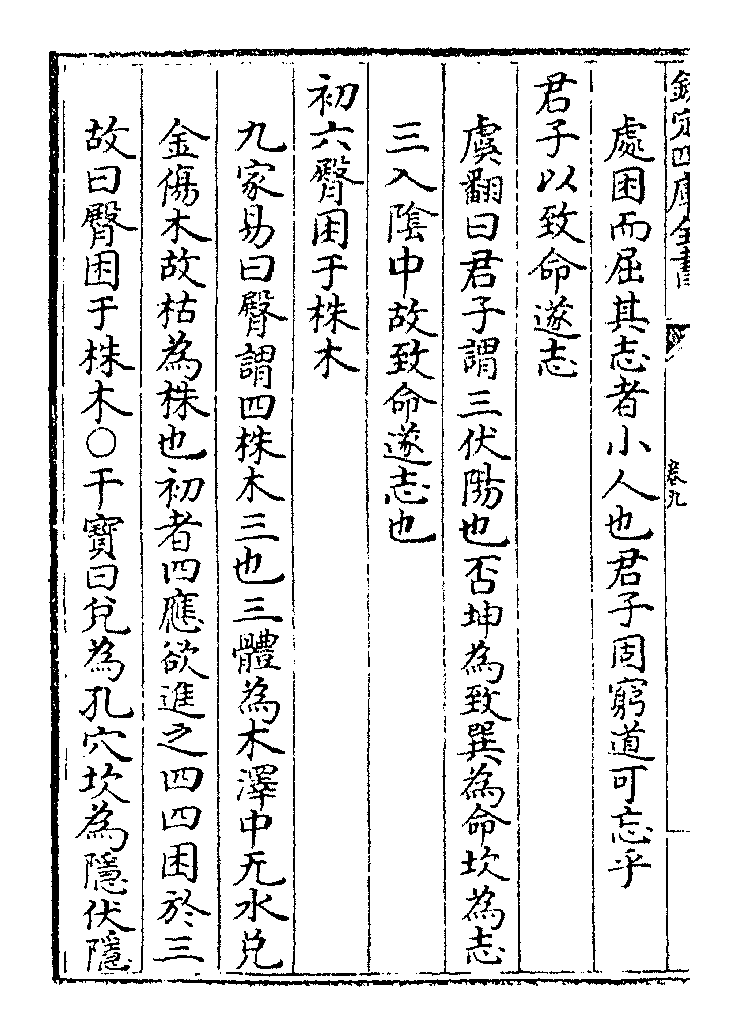 欽定四庫全書
卷九
處困而屈其志者小人也君子固窮道可忘乎
君子以致命遂志
虞翻曰君子謂三伏陽也否坤為致巽為命坎為志
三入陰中故致命遂志也
初六臀困于株木
九家易曰臀謂四株木三也三體為木澤中无水兌
金傷木故枯為株也初者四應欲進之四四困於三
故曰臀困于株木○干寶曰兌為孔穴坎為隱伏隱